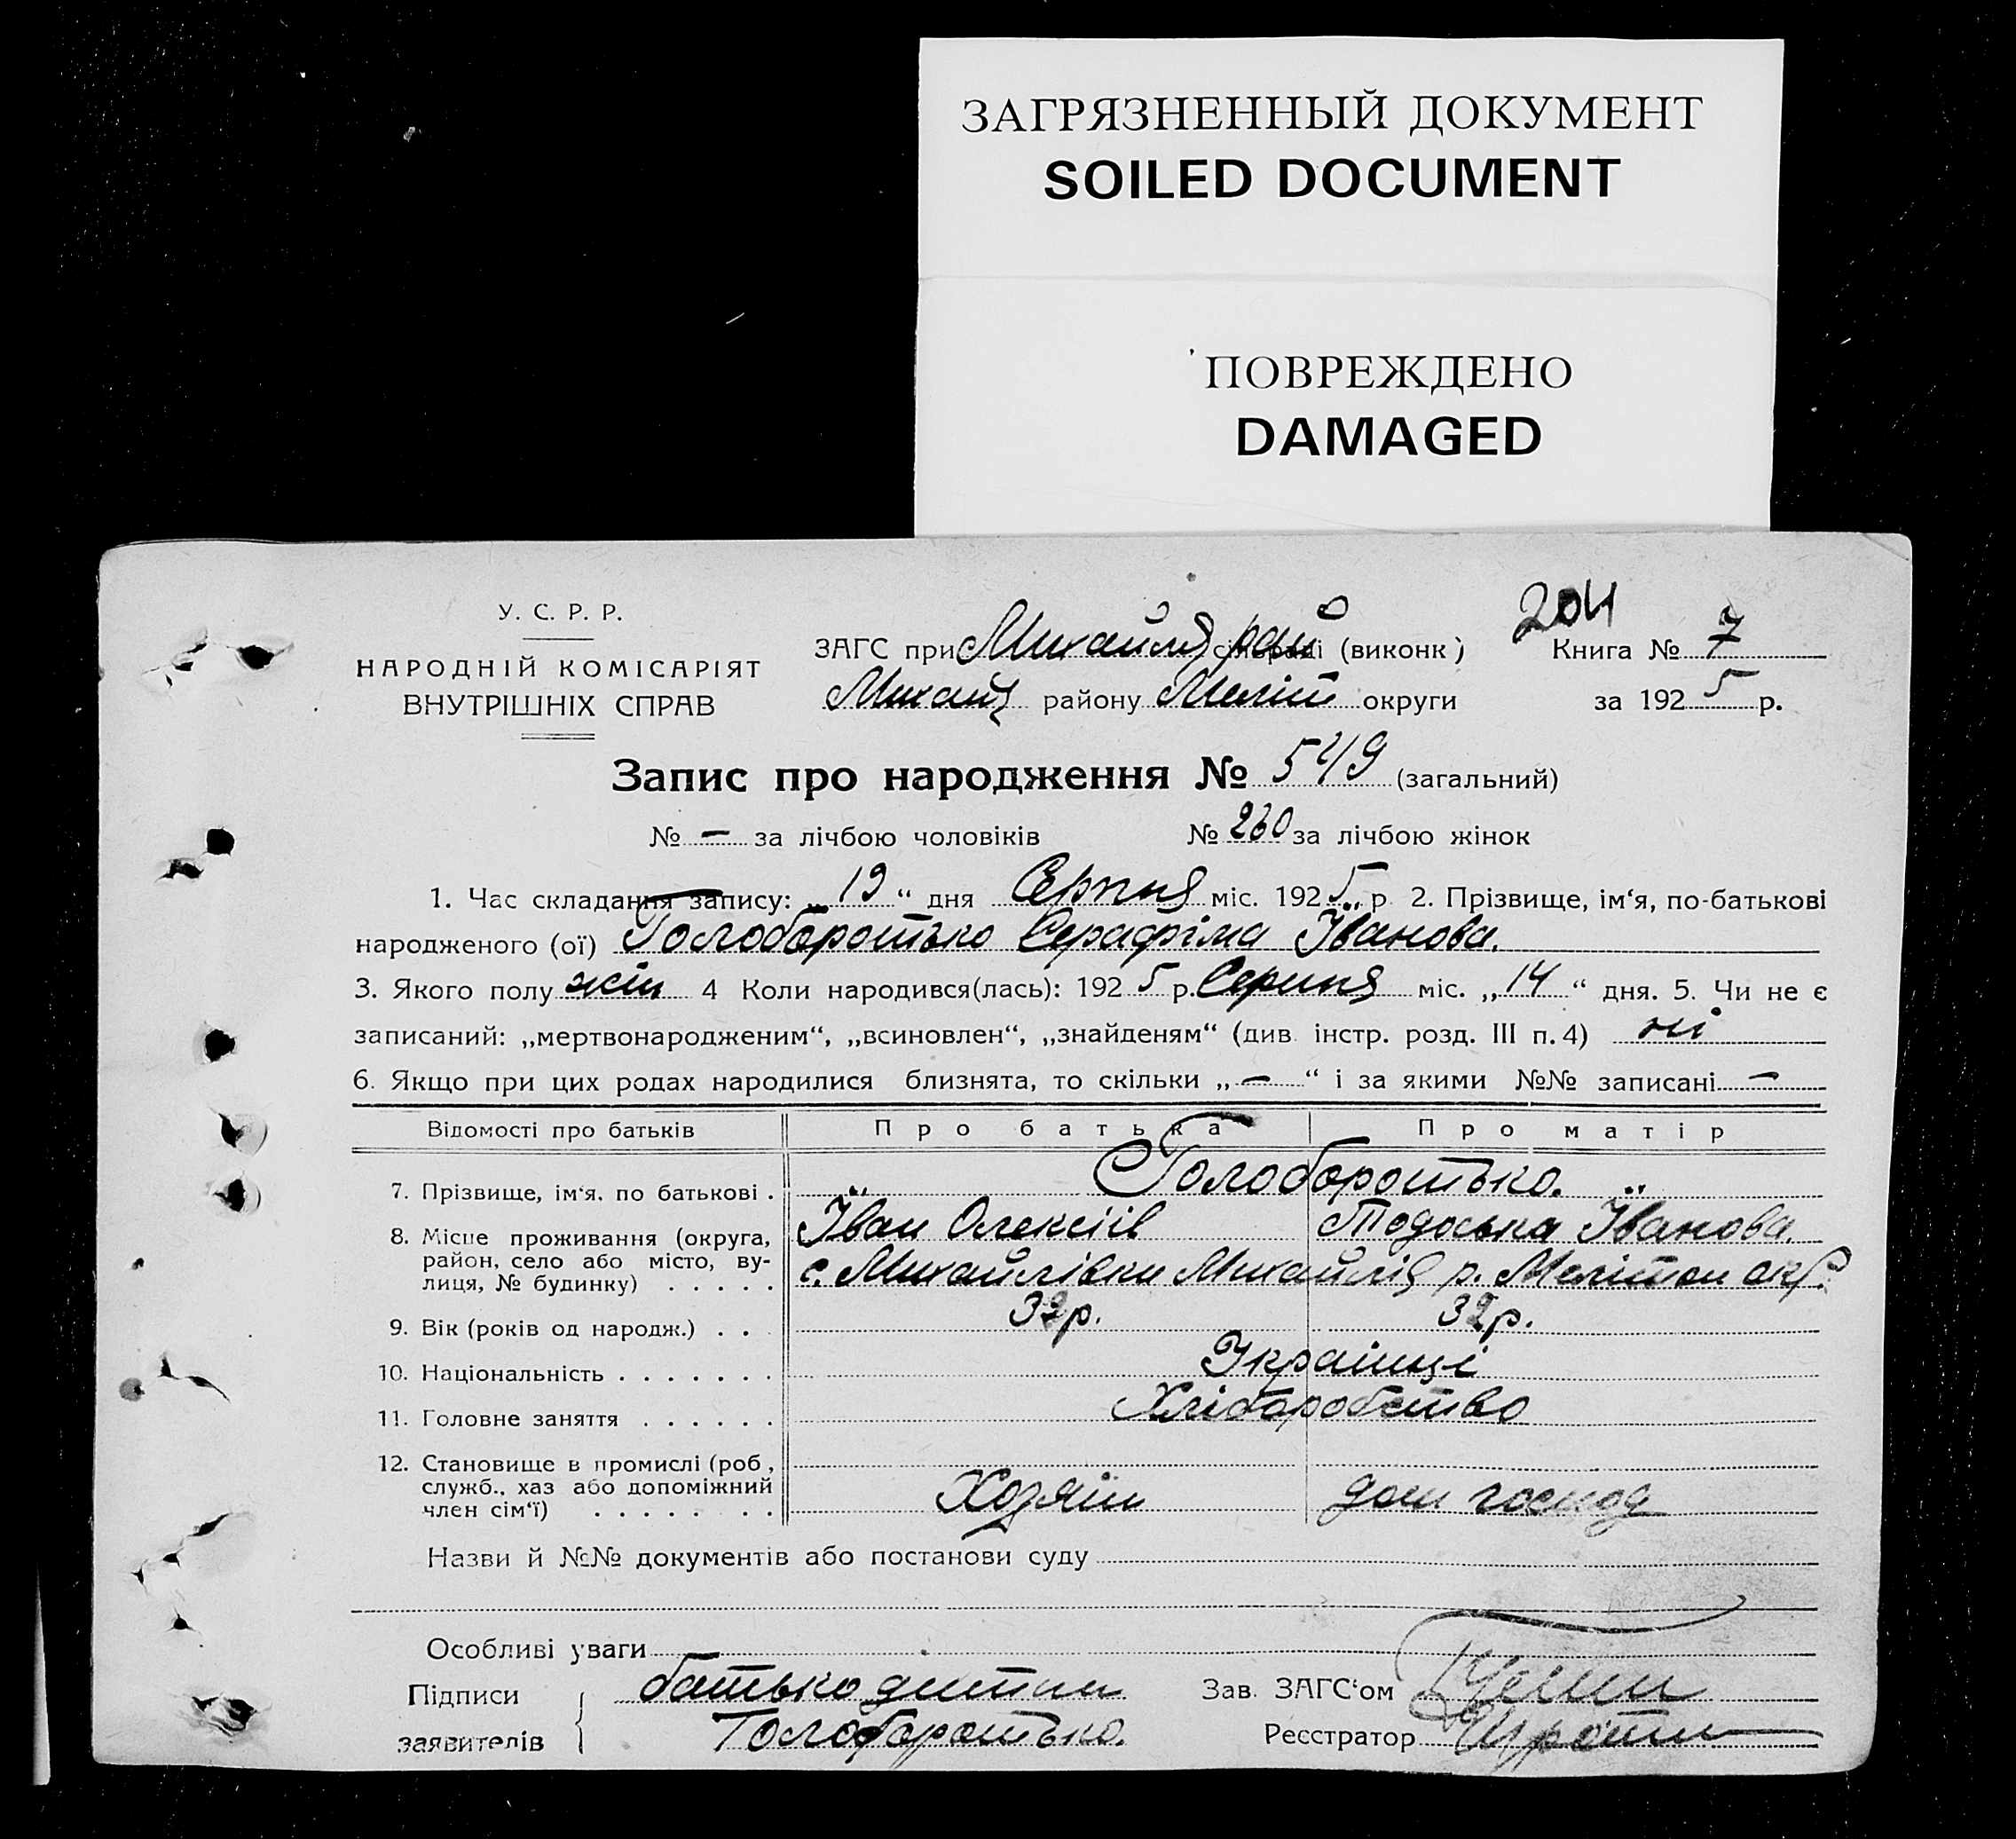 ЗАГРЯЗНЕННЫЙ ДОКУМЕНТ
SOILED DOCUMENT
ПОВРЕЖДЕНО
DAMAGED
204
У. С. Р. Р.
НАРОДНІЙ КОМІСАРІЯТ
ВНУТРІШНІХ СПРАВ
ЗАГС при Михайлів рай сільраді (виконк) Книга № 7
Михайл району Меліт округи за 1925 р.
Запис про народження № 549 (загальний)
№ — за лічбою чоловіків № 260 за лічбою жінок
1. Час складання запису: „19“ дня Серпня міс. 1925 р. 2. Прізвище, ім‘я, по-батькові
народженого (ої) Голоборотько Серафіма Іванова.
3. Якого полу жін 4 Коли народився(лась): 1925 р. Серпня міс. „14“ дня. 5. Чи не є
записаний: „мертвонародженим“, „всиновлен“, „знайденям“ (див. інстр. розд. III п. 4) ні
6. Якщо при цих родах народилися близнята, то скільки „—“ і за якими №№ записані —
Відомості про батьків Про батька Про матір
7. Прізвище, ім‘я, по батькові . Голоборотько.
Їван Олексіїв Тодоська Їванова.
8. Місце проживання (округа, район, село або місто, вулиця, № будинку) . . . . . с. Михайлівки Михайлів р. Меліто окр.
9. Вік (років од народж.) . . . 32 р. 32 р.
10. Національність . . . . . . . Українці
11. Головне заняття . . . . . . Хліборобство
12. Становище в промислі (роб., служб., хаз або допоміжний член сім‘ї) . . . . . . . Хозяїн дом господ
Назви й №№ документів або постанови суду
Особливі уваги
Підписи заявителів { батько дитини Зав. ЗАГС‘ом
Голоборотько. Реєстратор